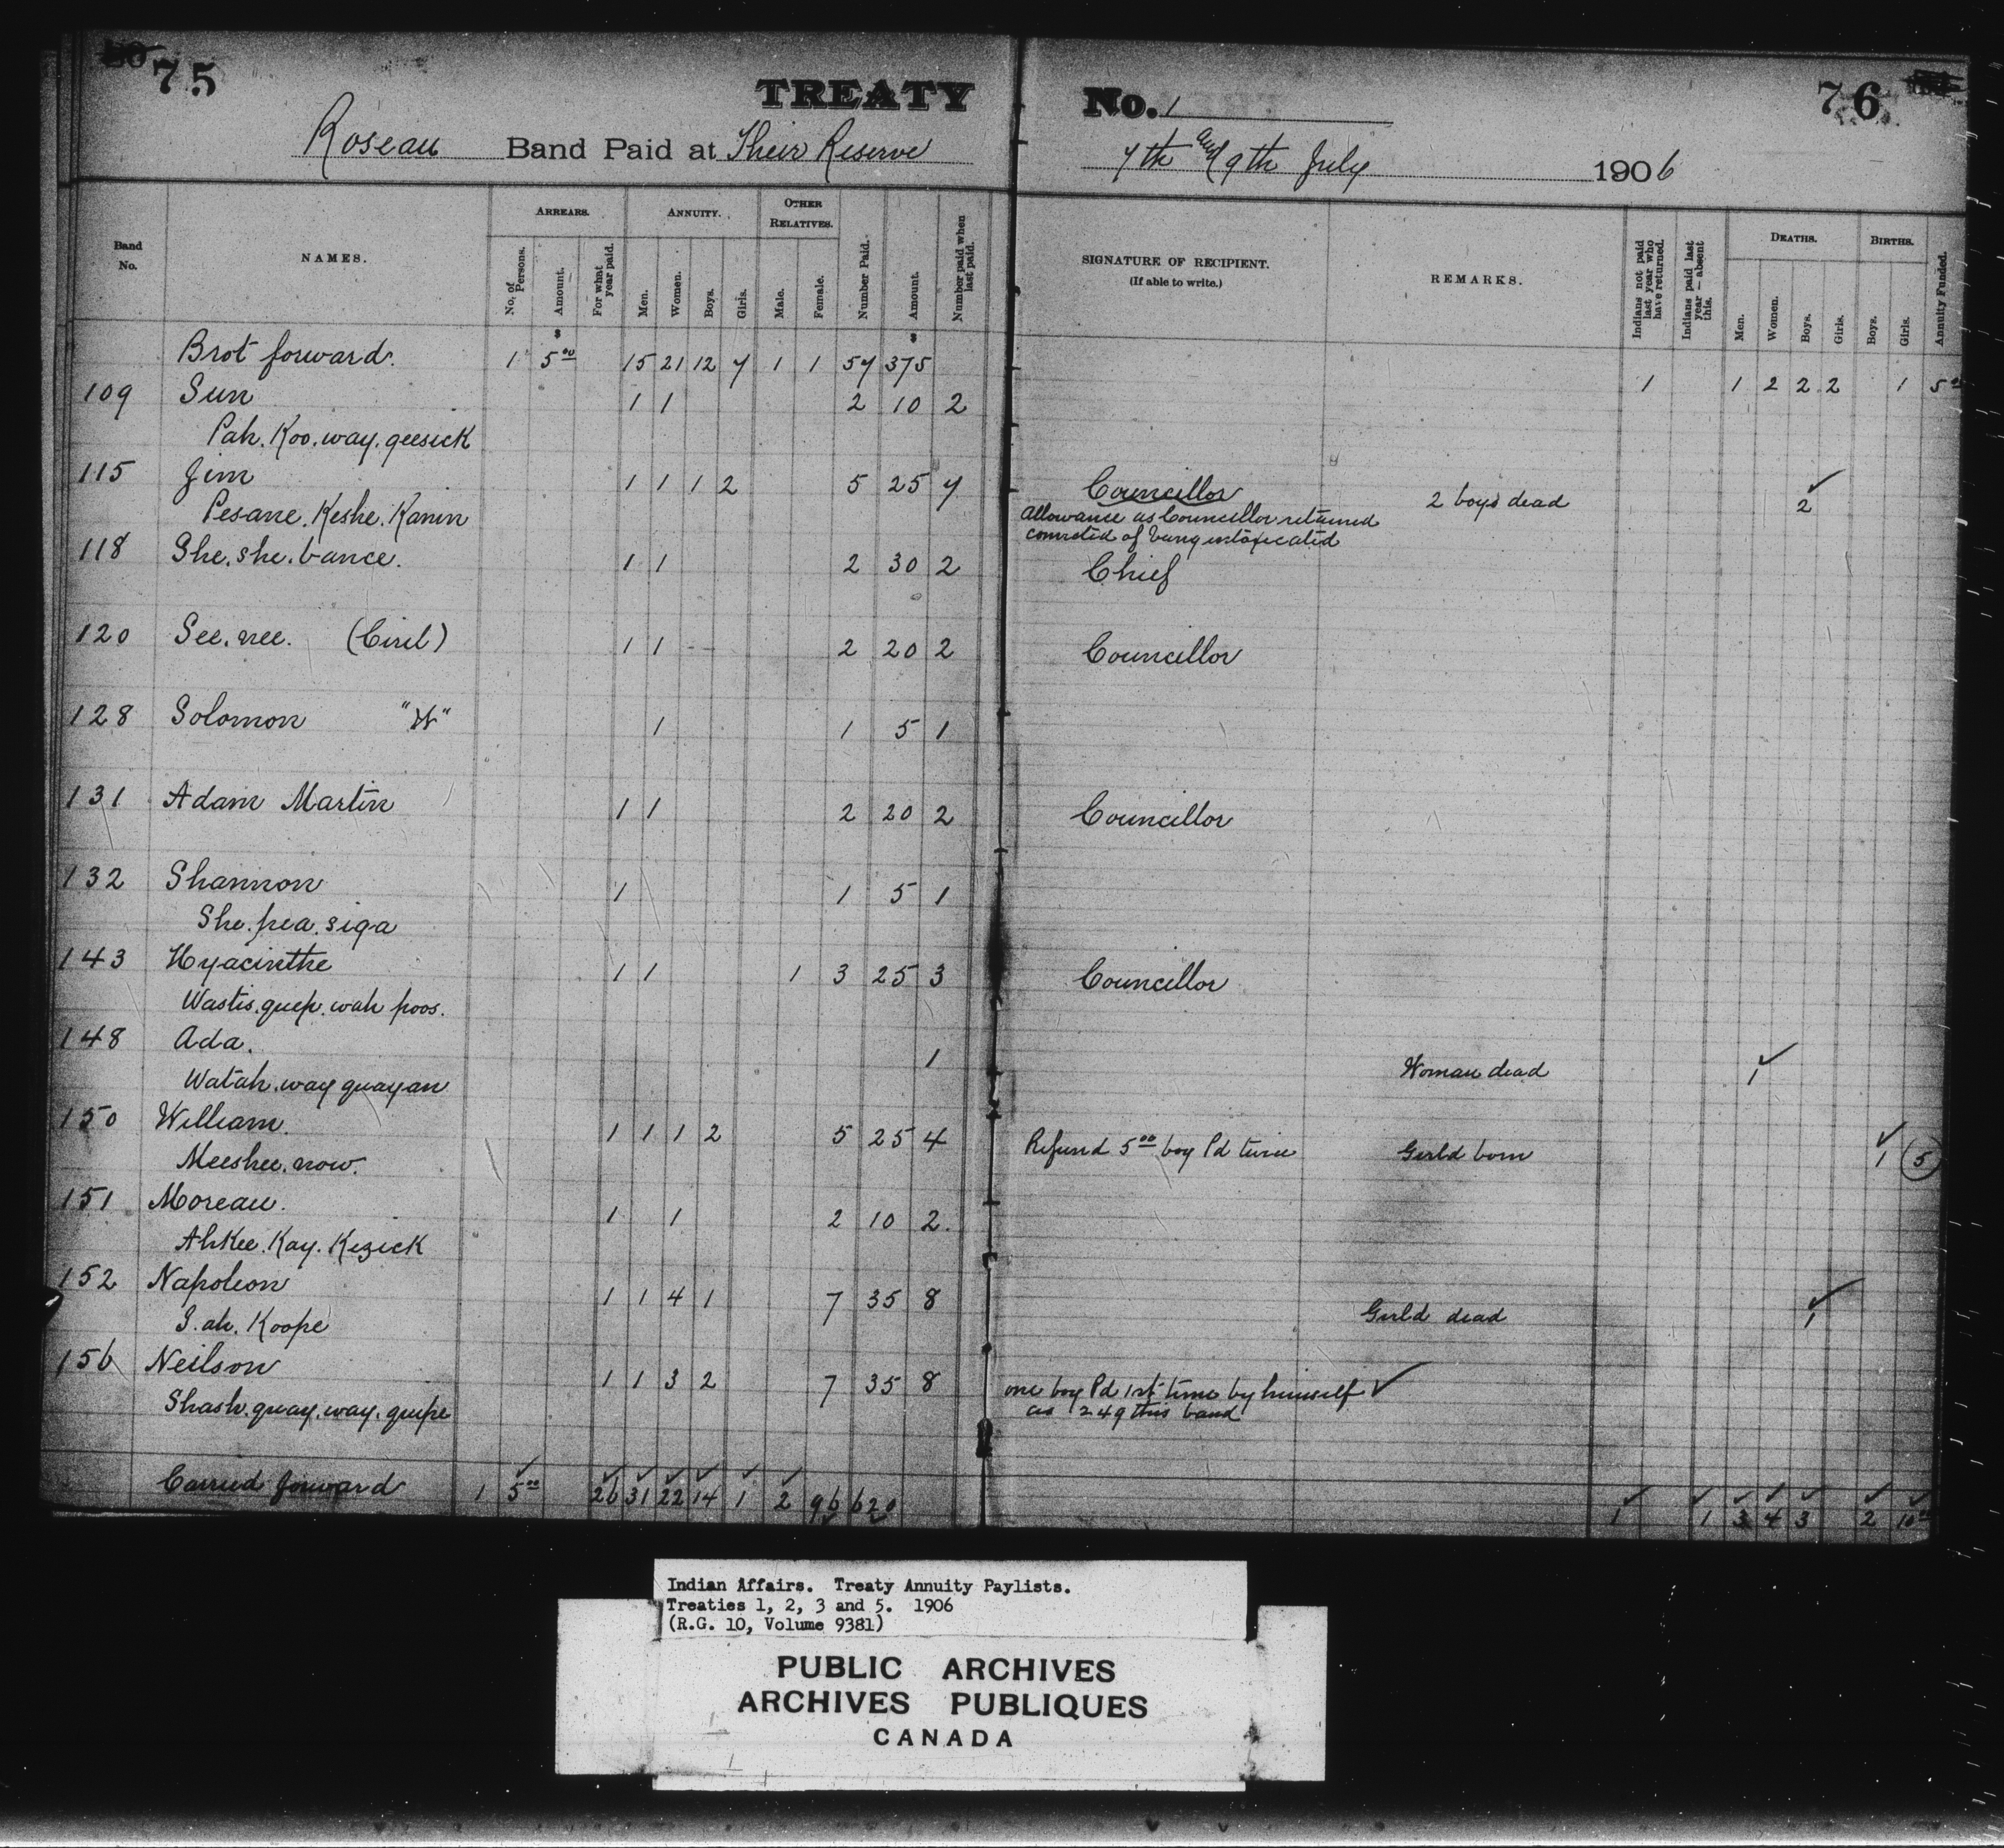 75
TREATY No. 1
76
Roseau Band Paid at Their Reserve 7th and 9th July 1906
Band No.
NAMES.
ARREARS.
No. of Persons.
Amount.
For what year paid.
ANNUITY.
Men.
Women.
Boys.
Girls.
OTHER RELATIVES.
Male.
Female.
Number Paid.
Amount.
Number paid when last paid.
SIGNATURE OF RECIPIENT.
(If able to write.)
REMARKS.
Indians not paid last year who have returned.
Indians paid last year — absent this.
DEATHS.
Men.
Women.
Boys.
Girls.
BIRTHS.
Boys.
Girls.
Annuity Funded.
$ $
Brot forward. 1 5.00 15 21 12 7 1 1 57 375 1 1 2 2 2 1 5.00
109 Sun 1 1 2 10 2
Pah. Koo. way. geesick
115 Jim 1 1 1 2 5 25 7 Councillor 2 boys dead 2 ✓
Pesane. Keshe. Kanin Allowance as Councillor returned
convicted of being intoxicated
118 She. she. bance. 1 1 2 30 2 Chief
120 See. nee. (Ciril) 1 1 2 20 2 Councillor
128 Solomon "W" 1 1 5 1
131 Adam Martin 1 1 2 20 2 Councillor
132 Shannon 1 1 5 1
She. pea. siga
143 Hyacinthe 1 1 1 3 25 3 Councillor
Wastis. guep. wah poos.
148 Ada. 1 Woman dead 1 ✓
Watah. way guayan
150 William. 1 1 1 2 5 25 4 Refund 5.00 boy Pd twice Girld born ✓ 1 (5)
Meeshee. now.
151 Moreau. 1 1 2 10 2.
Ahkee. Kay. Kezick
152 Napoleon 1 1 4 1 7 35 8 Girld dead 1 ✓
J. ah. Koope
156 Neilson 1 1 3 2 7 35 8 one boy Pd 1st time by himself ✓
Shash. guay. way. guepe as 249 this band
Carried forward 1 5.00 26 31 22 14 1 2 96 620 1 1 3 4 3 2 10.00
Indian Affairs. Treaty Annuity Paylists.
Treaties 1, 2, 3 and 5. 1906
(R.G. 10, Volume 9381)
PUBLIC ARCHIVES
ARCHIVES PUBLIQUES
CANADA